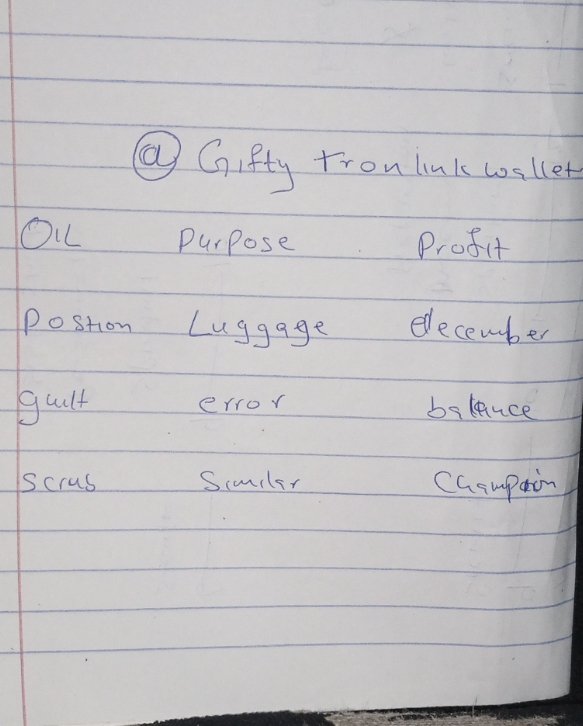 ⓐ Gifty tronlink wallet
OIL Purpose Profit
Postion Luggage december
guilt error balance
Scrub Similar Champion